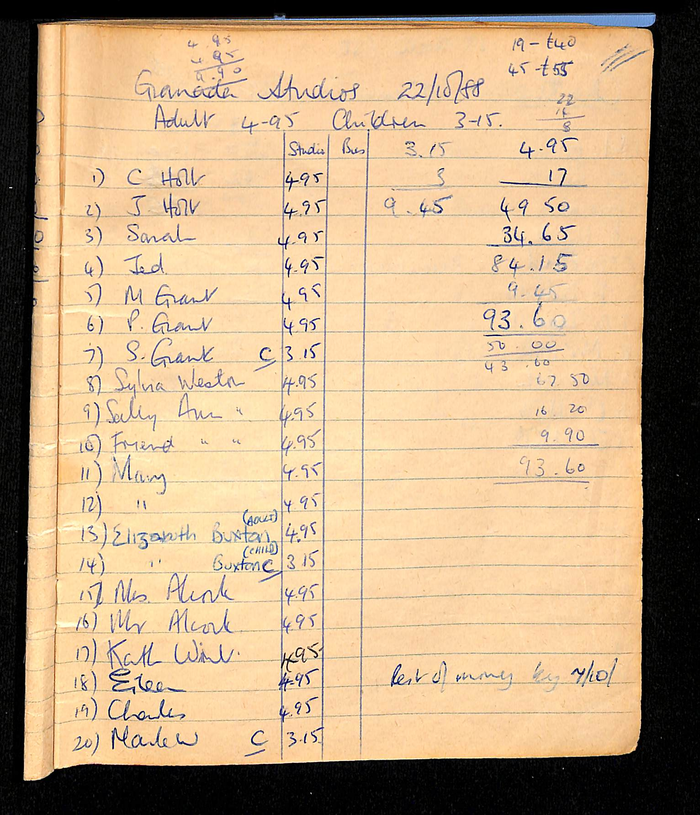 4.95
4.95
9.90
19 - £40
45 - £55
Granada Studios 22/10/88
22
8
Adult 4-95 Children 3-15.
Studio Bus 3.15 4.95
1) C Holt 4.95 3 17
2) J Holt 4.95 9.45 49 50
3) Sarah 4.95 34.65
4) Jed 4.95 84.15
5) M Grant 4.95 9.45
6) P. Grant 4.95 93.60
7) S. Grant C 3.15 50.00
43.60
8) Sylvia Weston 4.95 67.50
9) Sally Ann " 4.95 16.20
10) Friend " " 4.95 9.90
11) Mary 4.95 93.60
12) " 4.95
13) Elizabeth Buxton (ADULT) 4.95
14) " Buxton (CHILD) C 3.15
15) Mrs. Alcock 4.95
16) Mr Alcock 4.95
17) Kath 4.95
18) Eileen 4.95 Rest of money by 7/10/
19) Charles 4.95
20) C 3.15